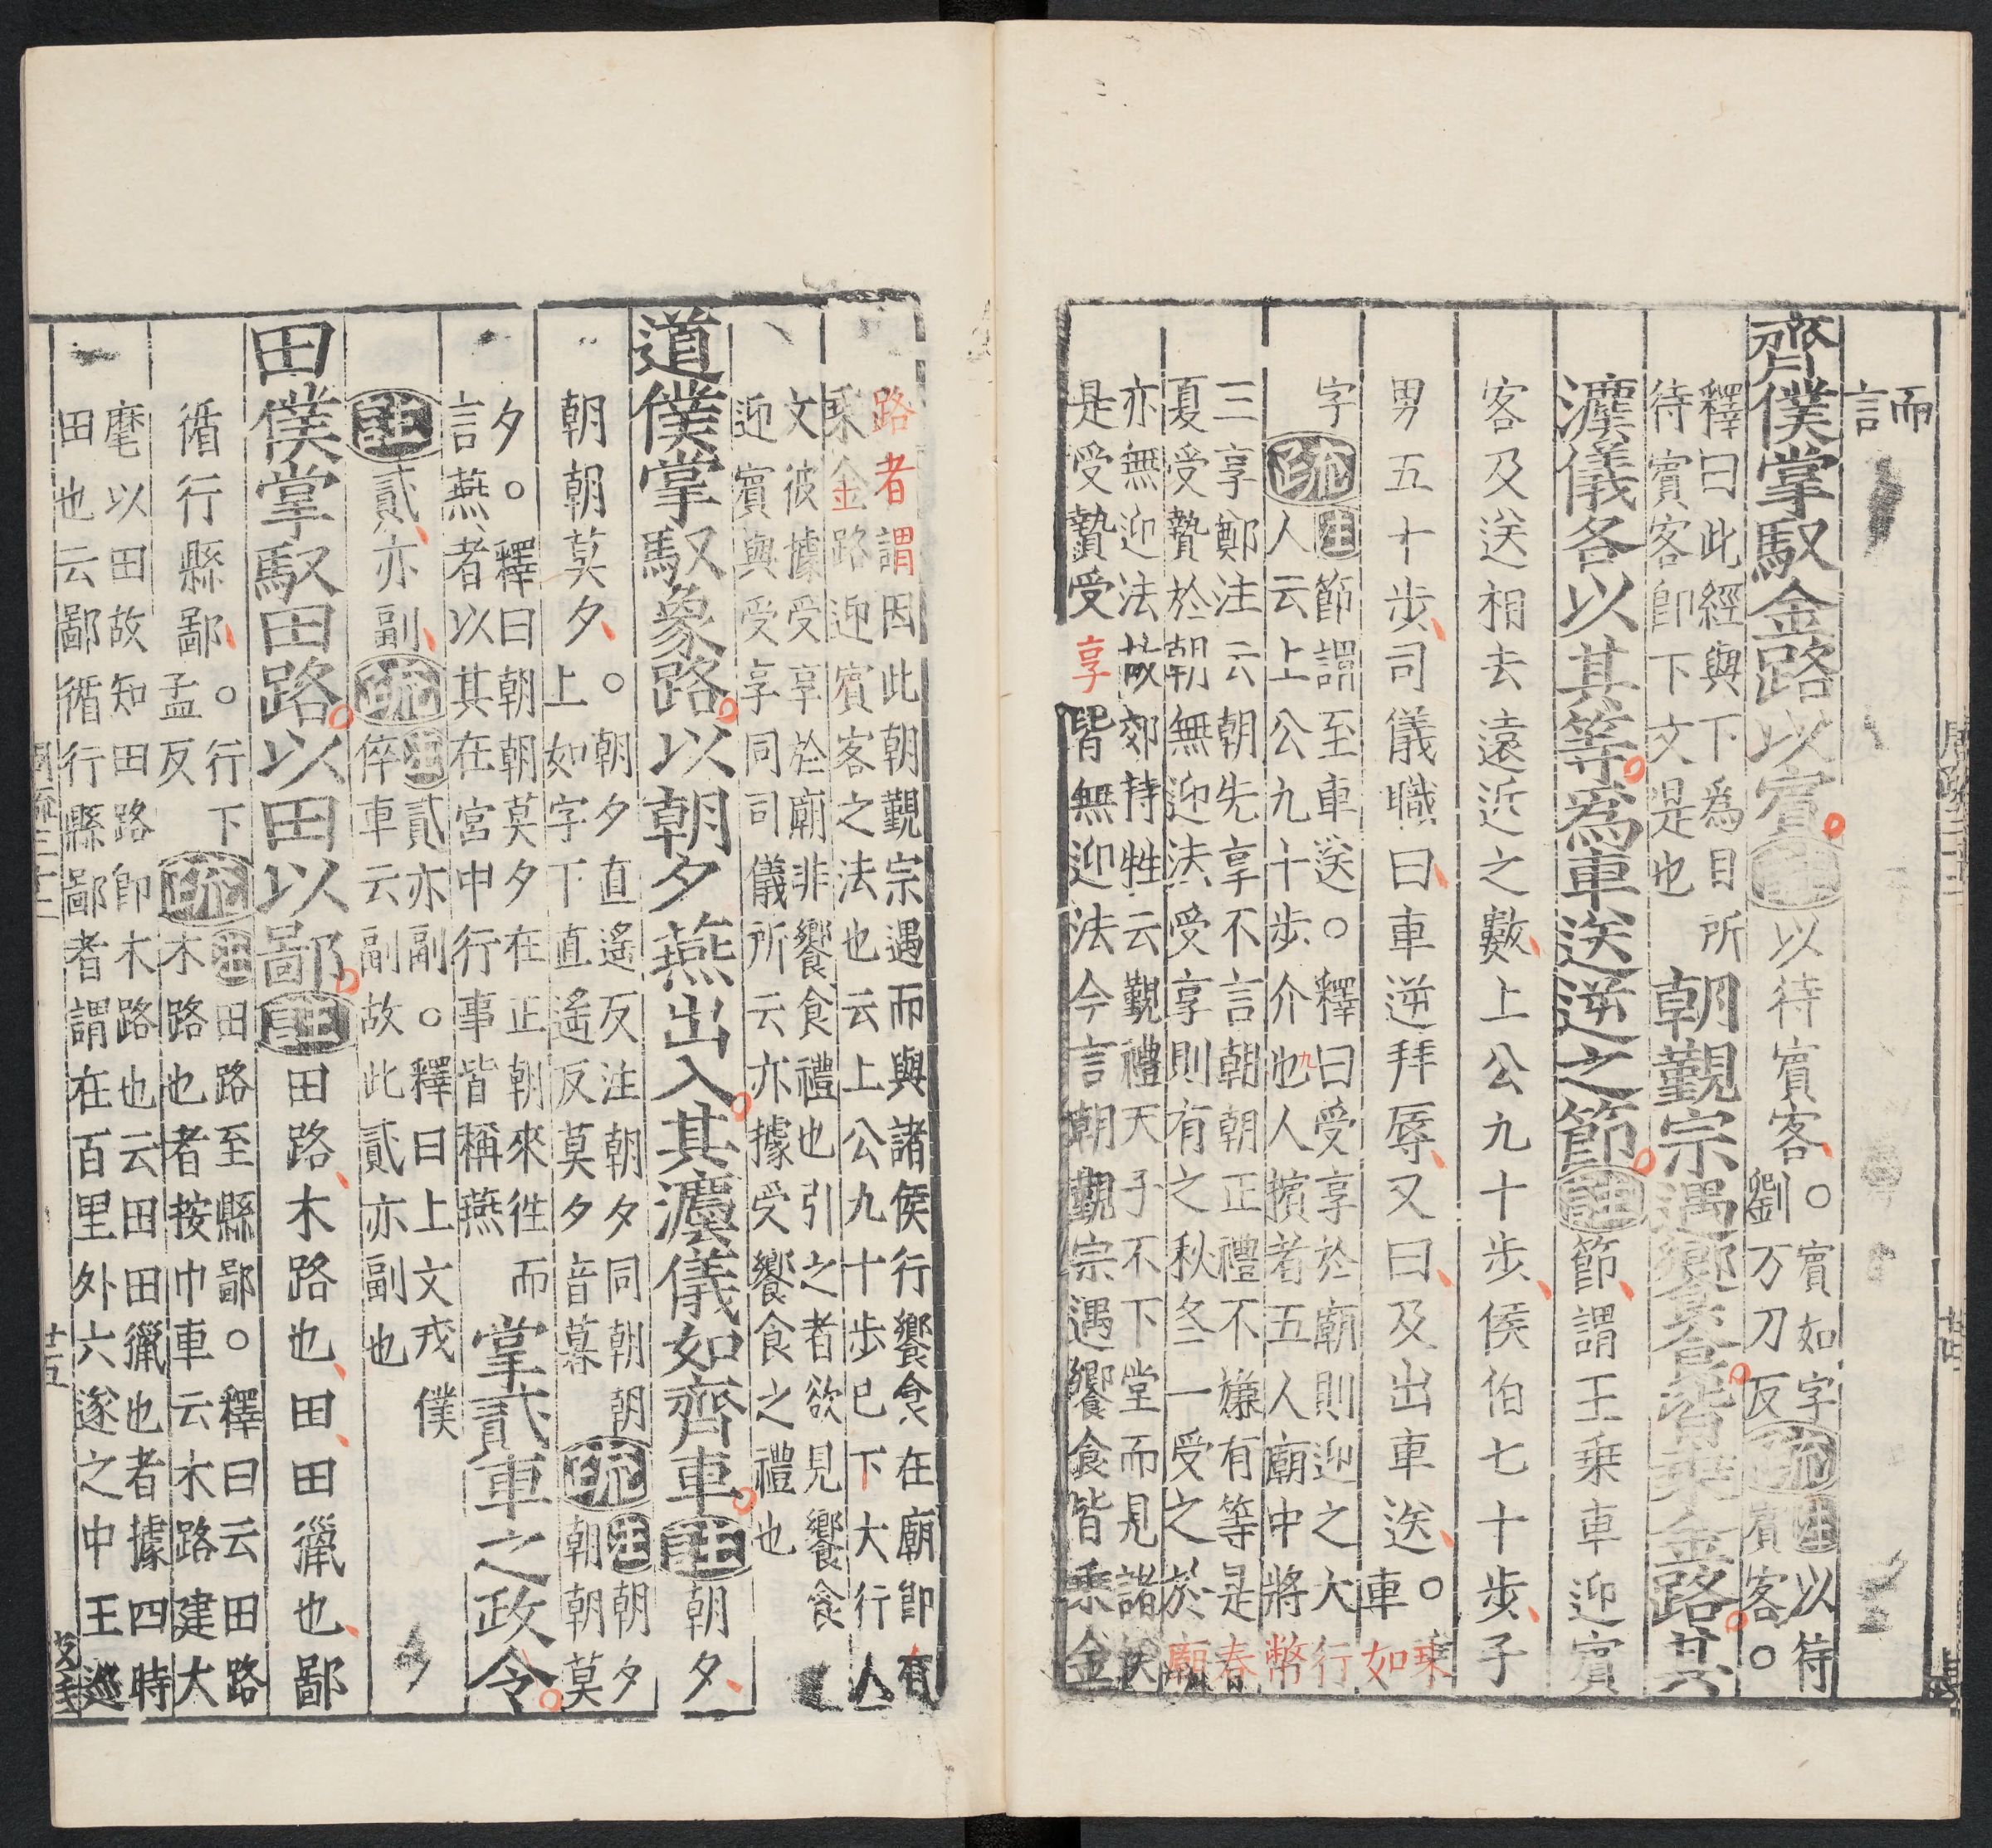 而言
齊僕掌馭金路以賓註以待賓客。賓如字劉万刀反疏註以待賓客。
釋曰此經與下為目所待賓客即下文是也朝覲宗遇饗食皆乘金路其
灋儀各以其等為車送逆之節註節謂王乗車迎賓
客及送相去遠近之數上公九十步侯伯七十步子
男五十步司儀職曰車逆拜辱又曰及出車送。乘車如
字疏註節謂至車送。釋曰受享於廟則迎之大行人云上公九十步介九人擯者五人廟中將幣
三享鄭注云朝先享不言朝朝正禮不嫌有等是春夏受贄於朝無迎法受享則有之秋冬一受之於廟
亦無迎法故郊特牲云覲禮天子不下堂而見諸侯是受贄受享皆無迎法今言朝覲宗遇饗食皆乘金
路者謂因此朝覲宗遇而與諸侯行饗食在廟即有乘金路迎賓客之法也云上公九十步已下大行人
文彼據受享於廟非饗食禮也引之者欲見饗食迎賓與受享同司儀所云亦據受饗食之禮也
道僕掌馭象路以朝夕燕出入其灋儀如齊車註朝夕
朝朝莫夕。朝夕直遙反注朝夕同朝朝上如字下直遙反莫夕音暮疏註朝夕朝朝莫
夕。釋曰朝朝莫夕在正朝來徃而言燕者以其在宮中行事皆稱燕掌貳車之政令
註貳亦副疏註貳亦副。釋曰上文戎僕倅車云副故此貳亦副也
田僕掌馭田路以田以鄙註田路木路也田田獵也鄙
循行縣鄙。行下孟反疏註田路至縣鄙。釋曰云田路木路也者按巾車云木路建大
麾以田故知田路即木路也云田田獵也者據四時田也云鄙循行縣鄙者謂在百里外六遂之中王巡
廿五